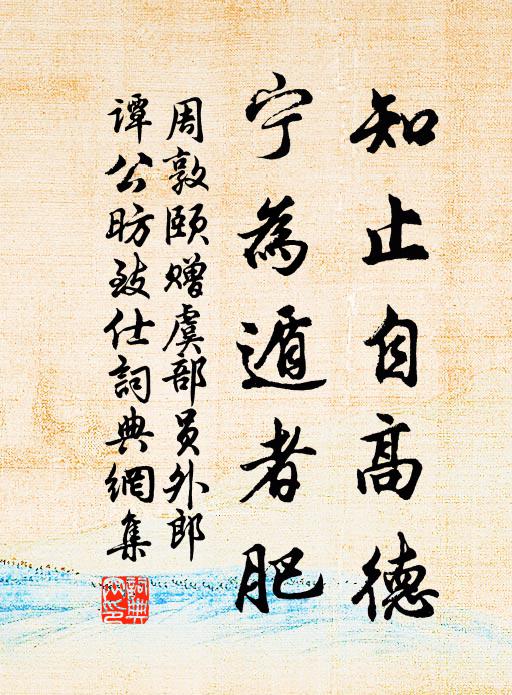 知止自高德
宁為遁者肥
周敦頤赠虞部员外郎
谭公昉致仕詞典網集